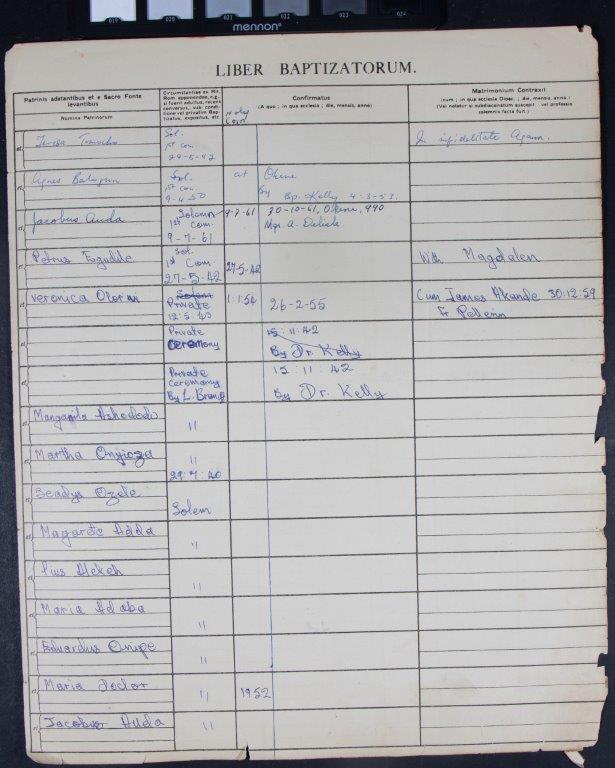 019 020 021 022 023 024
mennon
LIBER BAPTIZATORUM.
Patrinis adstantibus et e Sacro Fonte
levantibus
Nomina Patrinorum
Circumstantiae ex Rit.
Rom. apponendae, e.g.,
si fuerit adultus, recens
conversus, sub condi-
tione vel privatim Bap-
tizatus, expositus, etc.
Holy
Com
Confirmatus
(A quo ; in qua ecclesia ; die, mensis, anno)
Matrimonium Contraxit
(cum ; in qua ecclesia Dioec. ; die, mensis, anno.)
(Vel notatur si subdiaconatum suscepit vel professio
solemnis facta fuit.)
Teresa
Sol.
1st com
29-5-42
In infidelitate
Agnes Balogun
Sol.
1st com.
9-4-50
at Okene
By Bp. Kelly 4-3-53.
Jacobus Auda
Solemn
1st Com.
9-7-61
9-7-61
30-10-61, Okene, 990
Mgr. A. Delisle.
Petrus
Sol.
1st Com.
27-5-42
27-5-42
With Magdalen
Veronica
Solem
Private
12:5:40
1:1:54
26-2-55
Cum James Akande 30:12:59
Fr
Private
Ceremony
15:11:42
By Dr. Kelly
Private
Ceremony
By L.
15:11:42
By Dr. Kelly
Ashododo
"
Martha Onyioza
"
29:7:40
Ozele
Solem
Magarete Adda
"
Pius Alekeh
"
Maria Adaba
"
Eduardus Onipe
"
Maria
"
1952
Jacobus Auda
"